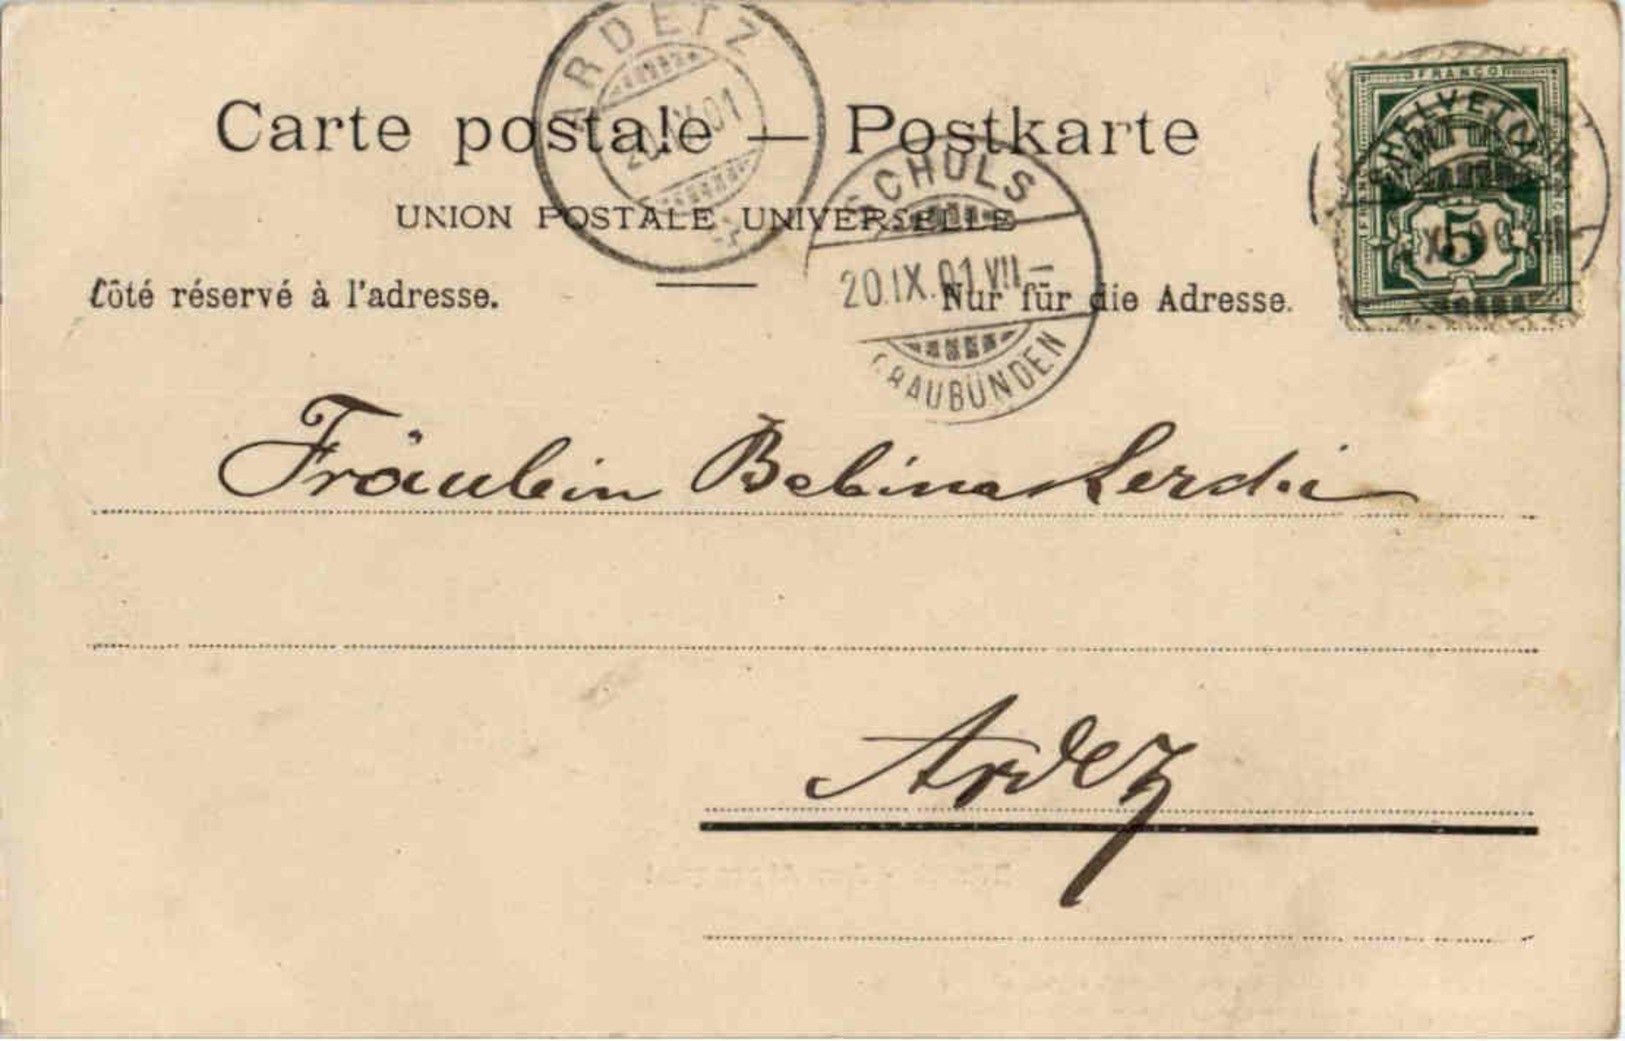 ARDETZ
20.IX.01
FRANCO
HELVETIA
5
Carte postale — Postkarte
SCHULS
UNION POSTALE UNIVERSELLE
20.IX.01.VII–
Côté réservé à l'adresse.
Nur für die Adresse.
GRAUBÜNDEN
Fräulein Bebina
Ardez